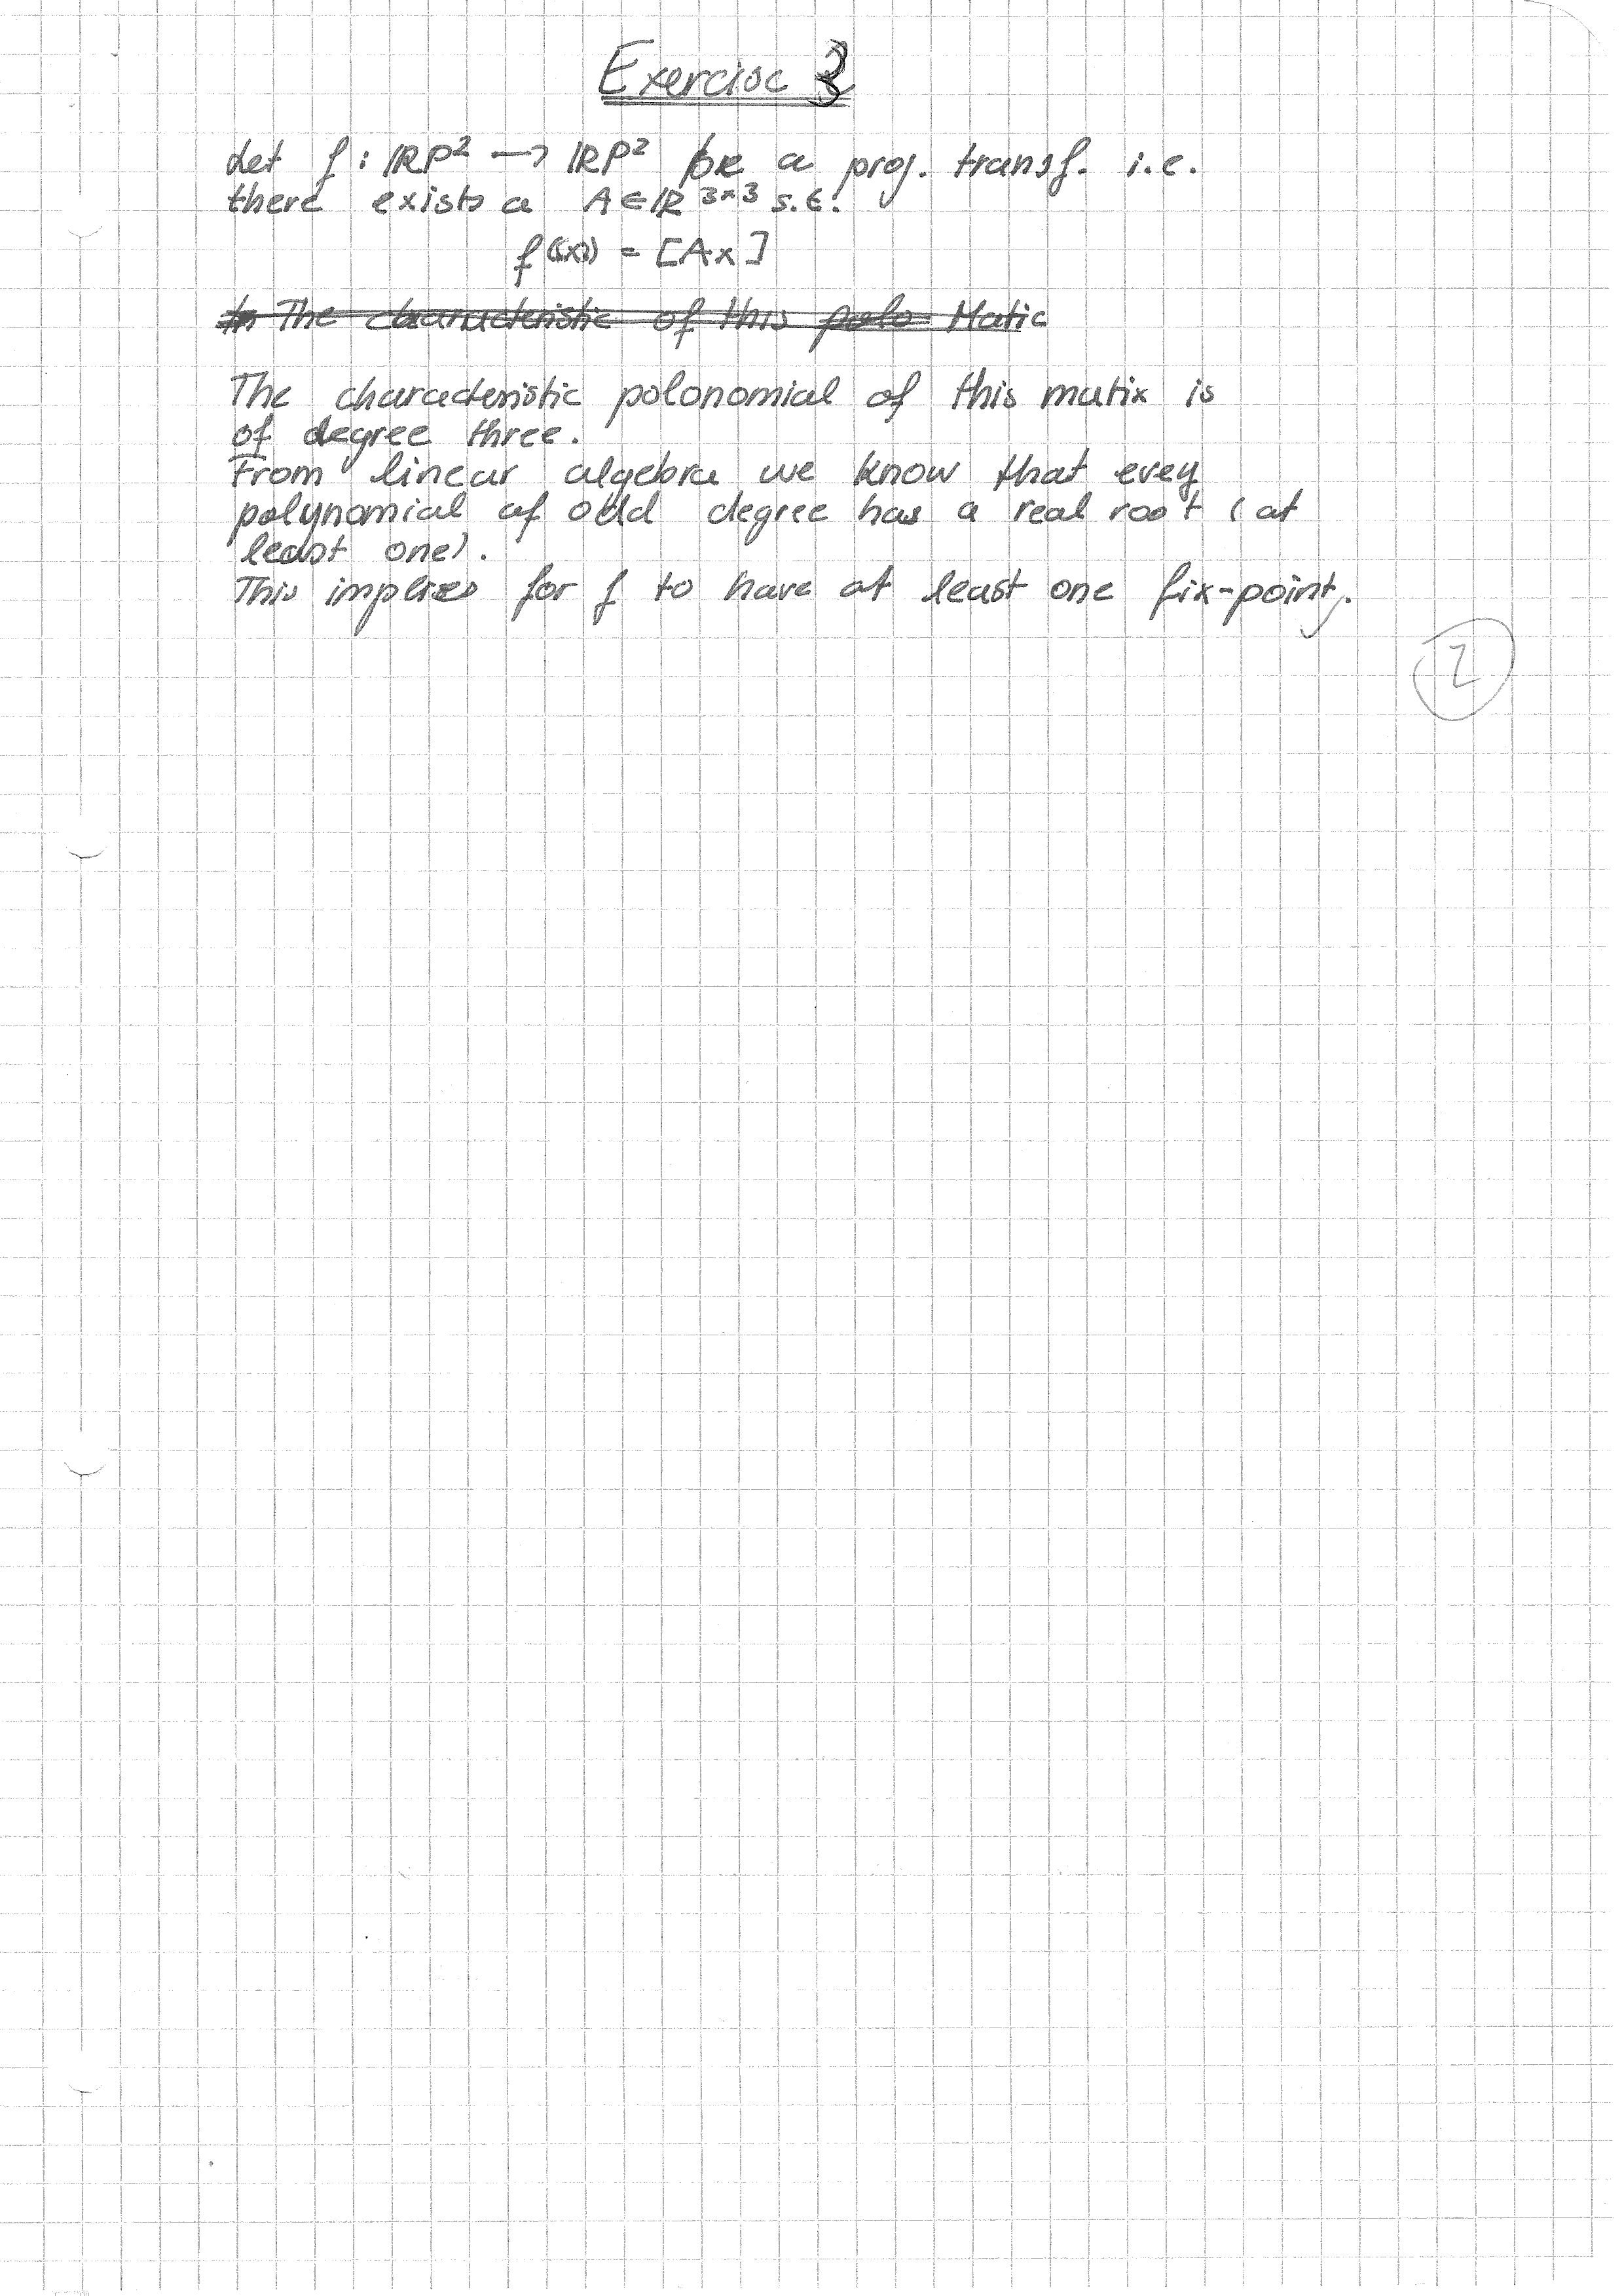 Exercise 3
Let f : ℝP² → ℝP² be a proj. transf. i.e.
there exists a A ∈ ℝ³ˣ³ s.t.
f([x]) = [Ax]
The characteristic of this polo Matic
The characteristic polonomial of this matix is
of degree three.
From linear algebra we know that evey
polynomial of odd degree has a real root (at
least one).
This implies for f to have at least one fix-point.
2